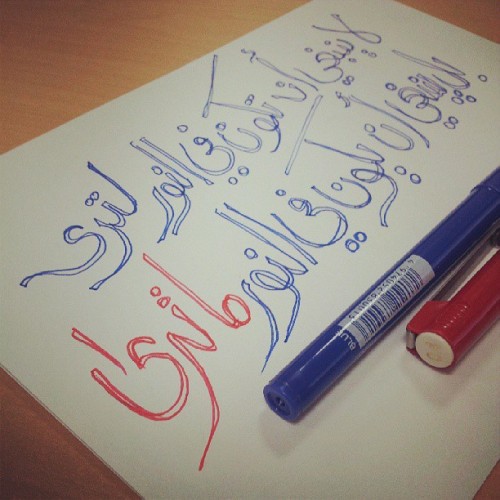 لا ينبغي أن تكون في النور لترى
بل ينبغي أن يكون في النور ما ترى
BLUE